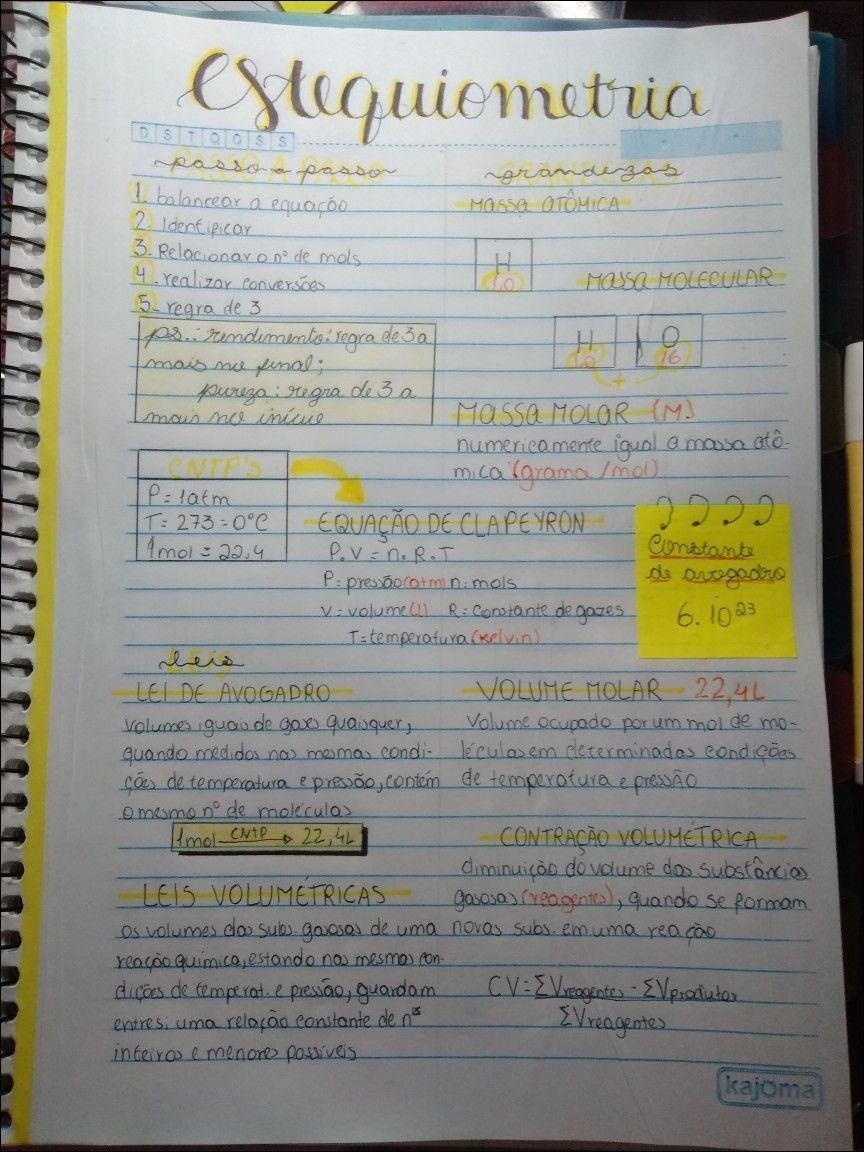 estequiometria
D S T Q Q S S
passo a passo
1. balancear a equação
2. Identificar
3. Relacionar o nº de mols
4. realizar conversões
5. regra de 3
ps.: rendimento: regra de 3 a
mais no final;
pureza: regra de 3 a
mais no início
grandezas
MASSA ATÔMICA
H
1,0
MASSA MOLECULAR
H O
1,0 + 16
MASSA MOLAR (M)
numericamente igual a massa atô-
mica (grama/mol)
CNTP'S
P = 1atm
T = 273 = 0°C
1mol = 22,4
EQUAÇÃO DE CLAPEYRON
P.V = n.R.T
P = pressão (atm) n: mols
V = volume (l) R = constante de gazes
T = temperatura (kelvin)
Constante
de avogadro
6.10²³
leis
LEI DE AVOGADRO
volumes iguais de gases quaisquer,
quando medidos nas mesmas condi-
ções de temperatura e pressão, contém
o mesmo nº de moléculas
1mol CNTP → 22,4L
LEIS VOLUMÉTRICAS
os volumes das subs. gasosas de uma
reação química, estando nas mesmas con-
dições de temperat. e pressão, guardam
entre si uma relação constante de nºs
inteiros e menores possíveis
VOLUME MOLAR - 22,4L
Volume ocupado por um mol de mo-
léculas em determinadas condições
de temperatura e pressão
CONTRAÇÃO VOLUMÉTRICA
diminuição do volume das substâncias
gasosas (reagentes), quando se formam
novas subs. em uma reação
CV = ΣVreagentes - ΣVprodutos
ΣVreagentes
kajoma